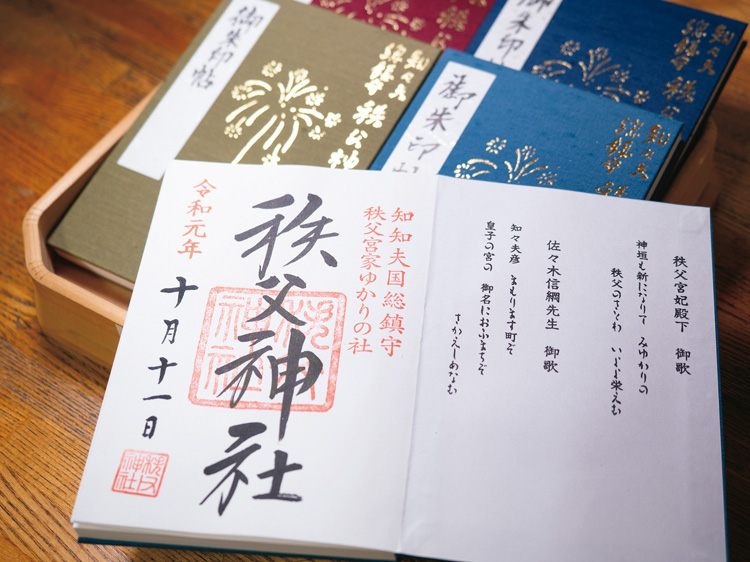 御朱印帖
御朱印帖
御朱印帖
知々夫
総鎮守
秩父神
知々夫
総鎮守
秩父神
知々夫
総鎮守
秩父宮妃殿下 御歌
神垣も新になりて みゆかりの
秩父のさとわ いよよ栄えむ
佐々木信綱先生 御歌
知々夫彦 まもります町ぞ
皇子の宮の 御名におふまちぞ
さかえしめなむ
知知夫国総鎮守
秩父宮家ゆかりの社
秩父神社
令和元年
十月十一日
秩父
神社